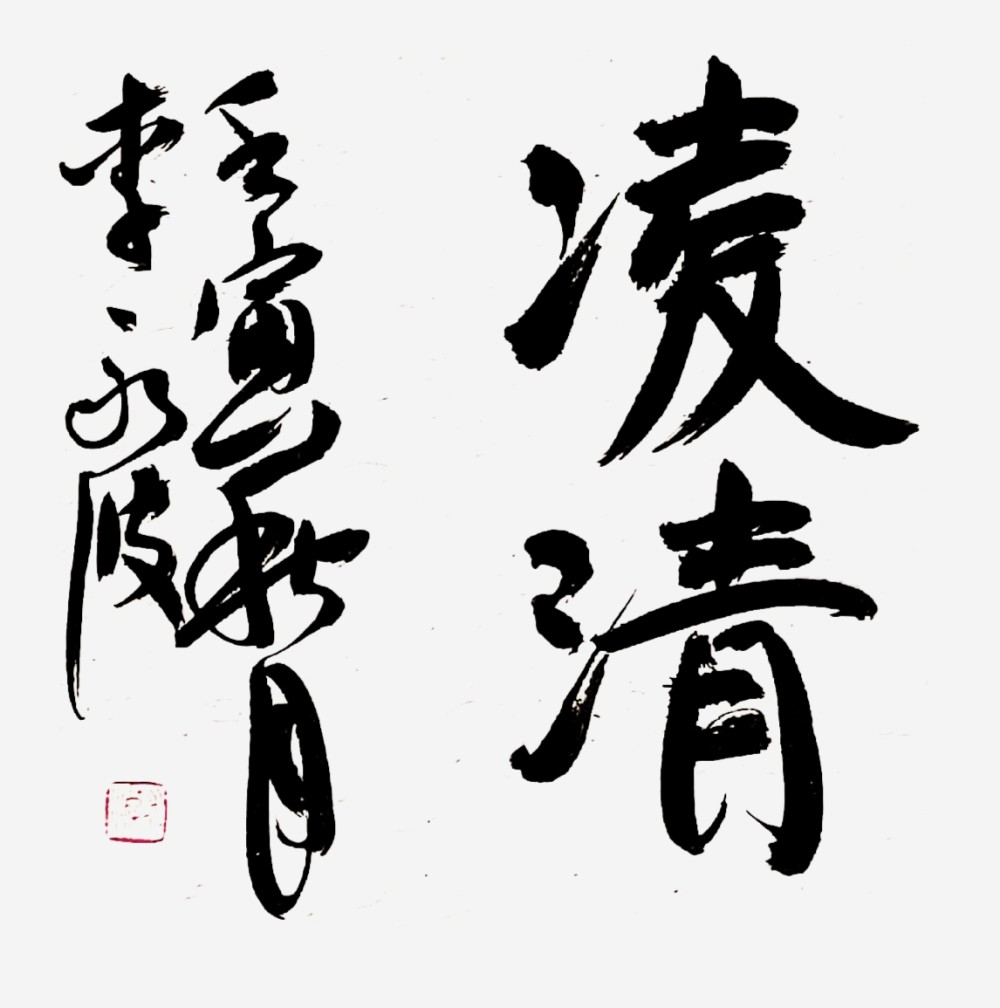 凌清
壬寅秋月
李永波